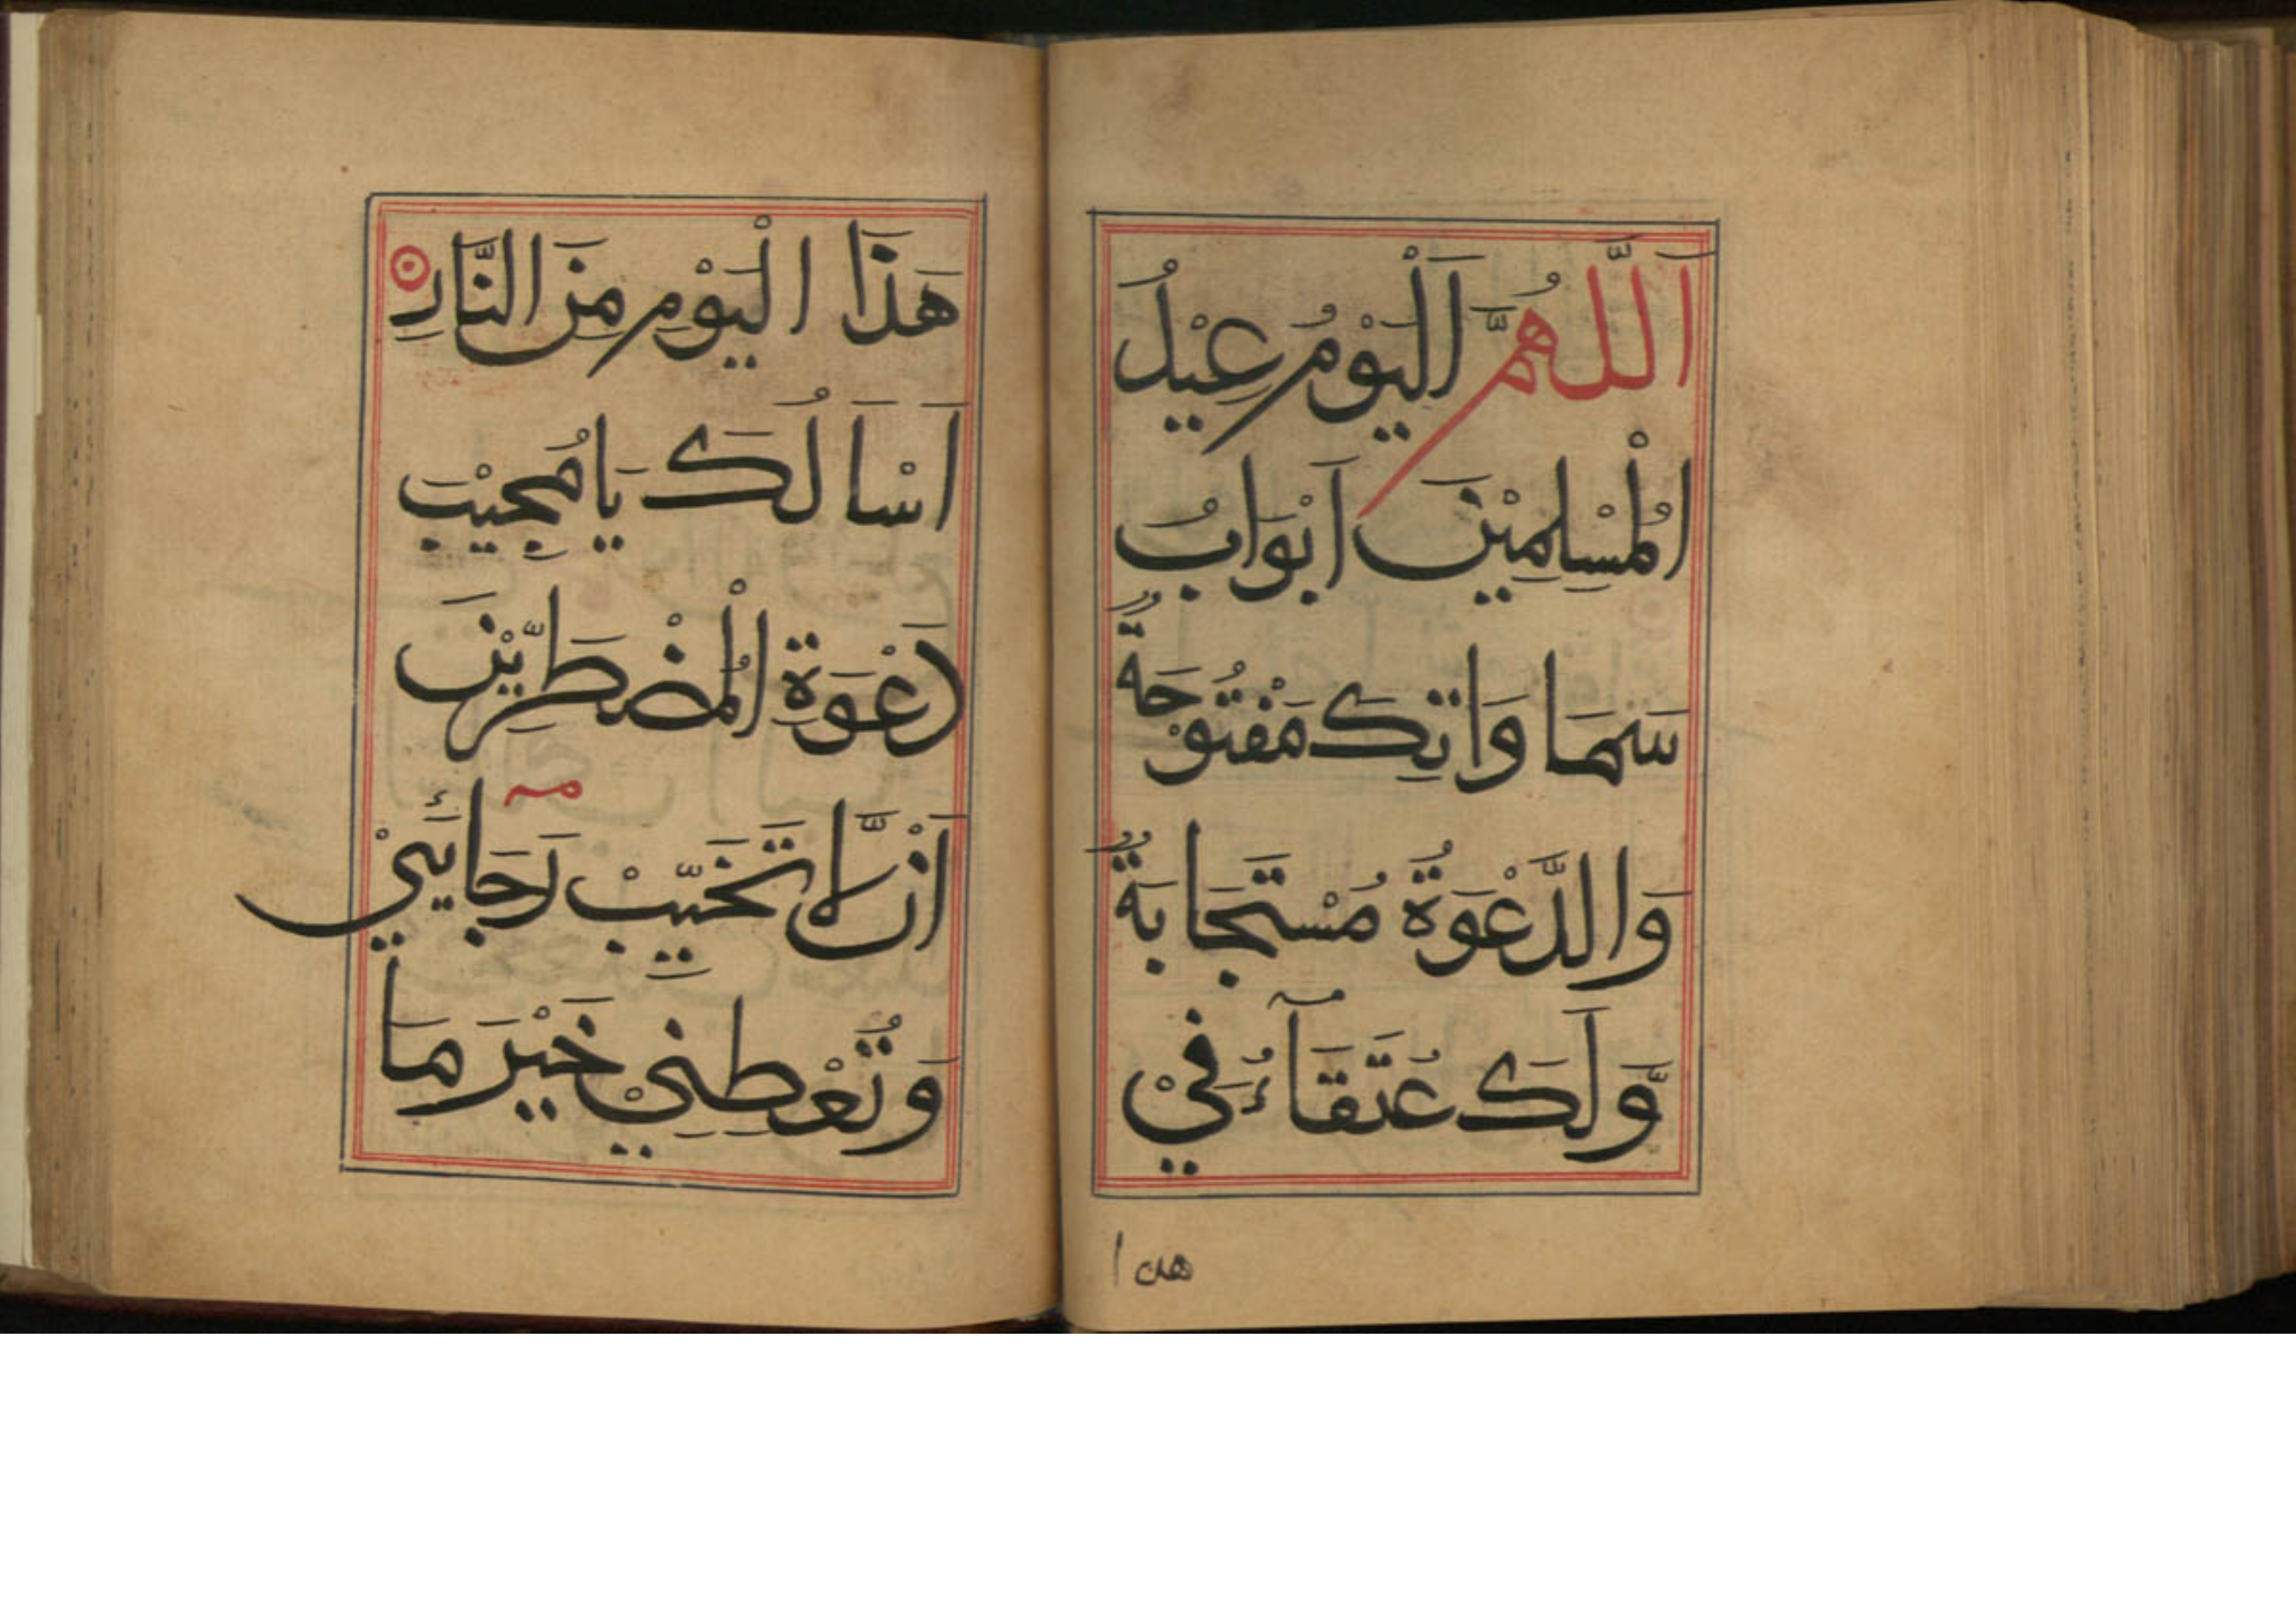 اَللّٰهُمَّ اَلْيَوْمُ عِيْدُ
الْمُسْلِمِيْنَ اَبْوَابُ
سَمَا وَاتِكَ مَفْتُوْحَةٌ
وَالدَّعْوَةُ مُسْتَجَابَةٌ
وَّلَكَ عُتَقَآءُ فِيْ
هذا
هَذَا الْيَوْمِ مِنَ النَّارِ
اَسْاَلُكَ يَا مُجِيْبَ
دَعْوَةِ الْمُضْطَرِّيْنَ
اَنْ لَّا تَخَيِّبْ رَجَائِيْ
وَتُعْطِنِيْ خَيْرَ مَا